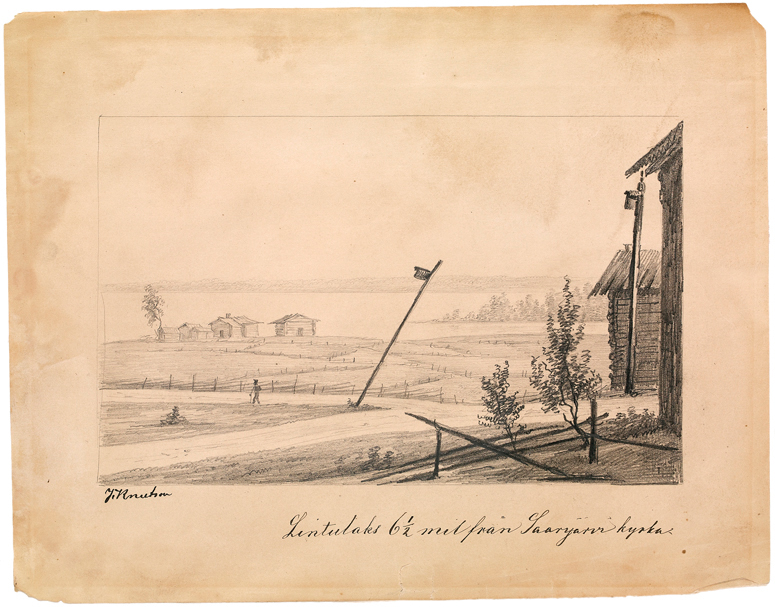 J. Knutson
Lintulaks 6½ mil från Saarijärvi kyrka.